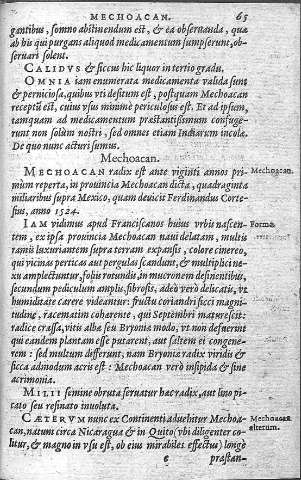 MECHOACAN. 65
gantibus, somno abstinendum est, & ea obseruanda, quæ
ab his qui purgans aliquod medicamentum sumpserunt, ob-
seruari solent.
CALIDVS & siccus hic liquor in tertio gradu.
OMNIA iam enumerata medicamenta valida sunt
& perniciosa, quibus vti desitum est, postquam Mechoacan
receptũ est, cuius vsus minimè periculosus est. Et ad ipsum,
tamquam ad medicamentum præstantissimum confuge-
runt non solùm nostri, sed omnes etiam Indiarum incolæ.
De quo nunc acturi sumus.
Mechoacan.
MECHOACAN radix est ante viginti annos pri- Mechoacan.
mùm reperta, in prouincia Mechoacan dicta, quadraginta
miliaribus supra Mexico, quam deuicit Ferdinandus Corte-
sius, anno 1524.
IAM vidimus apud Franciscanos huius vrbis nascen- Forma.
tem, ex ipsa prouincia Mechoacan naui delatam, multis
ramis luxuriantem supra terram expansis, colore cinereo,
qui vicinas perticas aut pergulas scandunt, & multiplici ne-
xu amplectuntur, foliis rotundis, in mucronem desinentibus,
secundum pediculum amplis, fibrosis, adeò verò delicatis, vt
humiditate carere videantur: fructu coriandri sicci magni-
tudine, racematim cohærente, qui Septembri maturescit:
radice crassa, vitis albæ seu Bryoniæ modo, vt non defuerint
qui eandem plantam esse putarent, aut saltem ei congene-
rem: sed multùm differunt, nam Bryoniæ radix viridis &
sicca admodum acris est: Mechoacan verò insipida & sine
acrimonia.
MILII semine obruta seruatur hæc radix, aut lino pi-
cato seu resinato inuoluta.
CÆTERVM nunc ex Continenti aduehitur Mechoa- Mechoacan
can, natum circa Nicaragua & in Quito (vbi diligenter co- alterum.
litur, & magno in vsu est, ob eius mirabiles effectus) longè
e præstan-